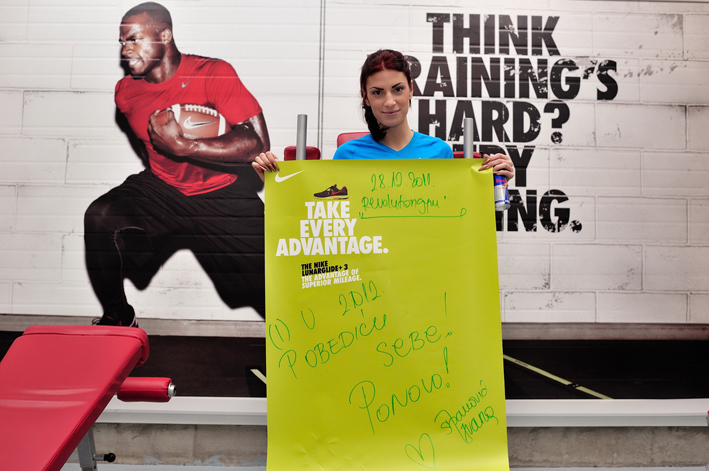 THINK
RAINING'S
HARD?
NG.
28.12.2011.
Revolutiongym
TAKE
EVERY
ADVANTAGE.
THE NIKE
LUNARGLIDE+ 3
THE ADVANTAGE OF
SUPERIOR MILEAGE.
(I) U 2012
POBEDIĆU SEBE!
PONOVO!
Španović
Ivana